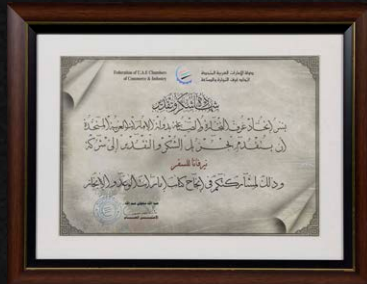 Federation of U.A.E Chambers
of Commerce & Industry
دولة الإمارات العربية المتحدة
اتحاد غرف التجارة والصناعة
شهادة شكر وتقدير
يسر اتحاد غرف التجارة والصناعة بدولة الإمارات العربية المتحدة
أن يتقدم بجزيل الشكر والتقدير إلى شركة
نيرفانا للسفر
وذلك لمشاركتكم في إنجاح
عبد الله سلطان عبد الله
الأمين العام